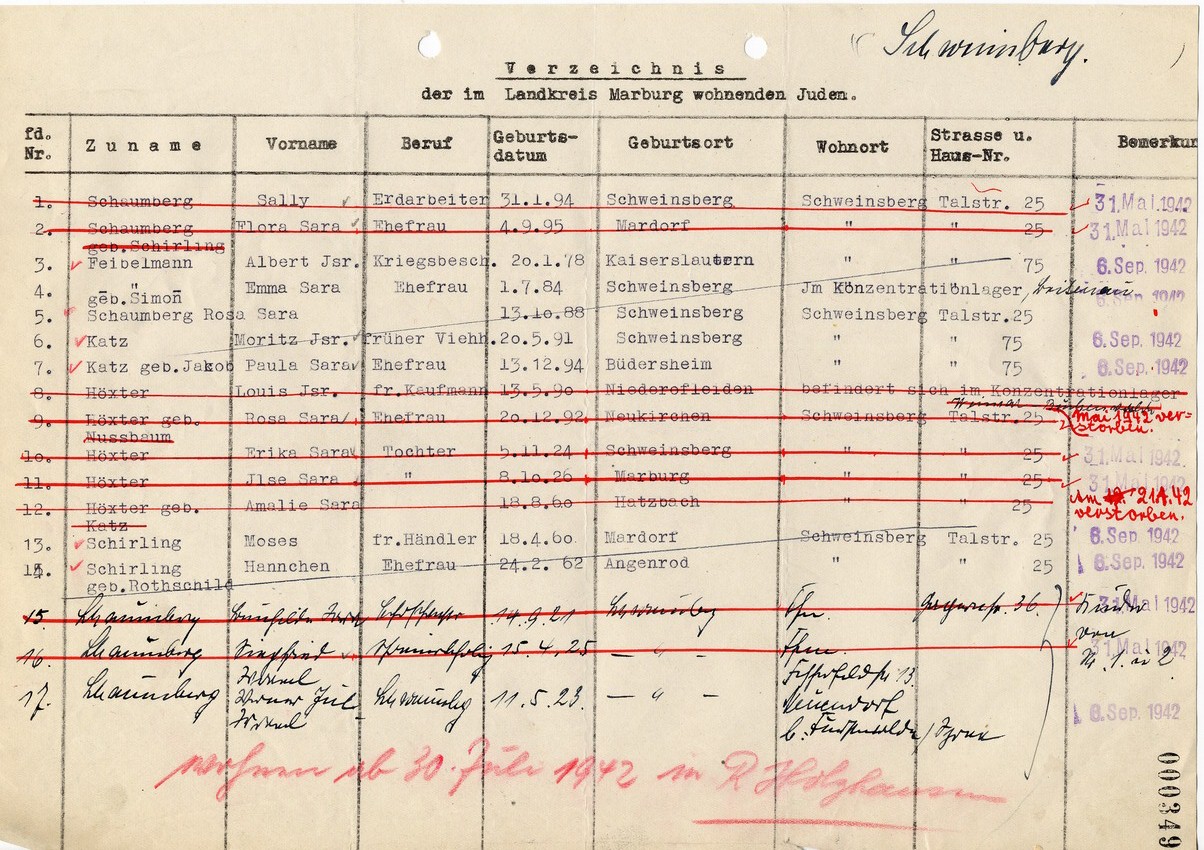 Schweinsberg.
Verzeichnis
der im Landkreis Marburg wohnenden Juden.
fd. Nr. Zuname Vorname Beruf Geburts-datum Geburtsort Wohnort Strasse u. Haus-Nr. Bemerkun
1. Schaumberg Sally Erdarbeiter 31.1.94 Schweinsberg Schweinsberg Talstr. 25 31.Mai.1942
2. Schaumberg Flora Sara Ehefrau 4.9.95 Mardorf " " 25 31.Mai 1942
geb.Schirling
3. Feibelmann Albert Jsr. Kriegsbesch. 20.1.78 Kaiserslautern " " 75 6.Sep.1942
4. " Emma Sara Ehefrau 1.7.84 Schweinsberg Jm Konzentrationlager, 6.Sep.1942
geb.Simon
5. Schaumberg Rosa Sara 13.10.88 Schweinsberg Schweinsberg Talstr.25
6. Katz Moritz Jsr. früher Viehh. 20.5.91 Schweinsberg " " 75 6.Sep.1942
7. Katz geb.Jakob Paula Sara Ehefrau 13.12.94 Büdersheim " " 75 6.Sep.1942
8. Höxter Louis Jsr. fr.Kaufmann 13.5.90 Niederofleiden befindert sich im Konzentrationlager
9. Höxter geb. Rosa Sara Ehefrau 20.12.92 Neukirchen Schweinsberg Talstr.25 Mai 1942 ver-
Nussbaum storben.
10. Höxter Erika Sara Tochter 5.11.24 Schweinsberg " " 25 31.Mai 1942
11. Höxter Jlse Sara " 8.10.26 Marburg " " 25 31.Mai 1942
12. Höxter geb. Amalie Sara 18.8.60 Hatzbach " " 25 Am 21.1.42
Katz verstorben.
13. Schirling Moses fr.Händler 18.4.60 Mardorf Schweinsberg Talstr. 25 6.Sep.1942
14. Schirling Hannchen Ehefrau 24.2. 62 Angenrod " " 25 6.Sep.1942
geb.Rothschild
15. Schaumberg 14.9.21 Schweinsberg 36. Kinder 31.Mai 1942
von
16. Schaumberg Siegfried 15.4.25 — " — 31.Mai 1942
Israel N. 1 u 2
17. Schaumberg Werner Jul- Schweinsberg 11.5.23. — " — Neuendorf 6.Sep.1942
Israel b. Fürstenwalde/Spree
wohnen ab 30. Juli 1942 in R Holzhausen
000349